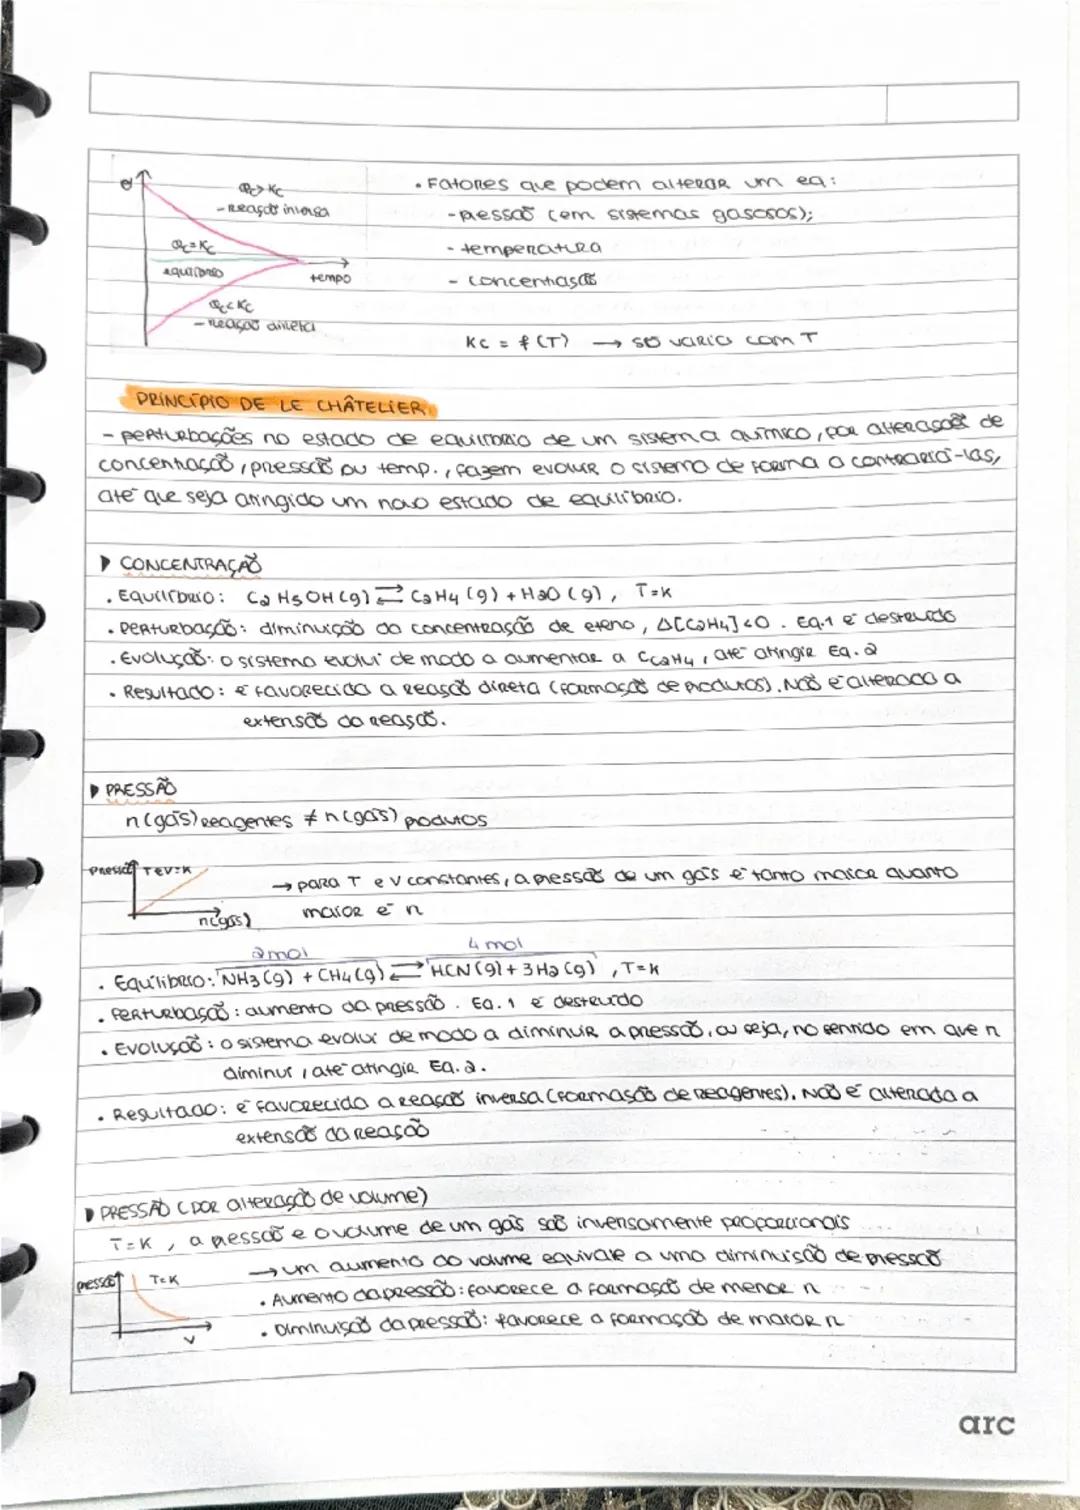 Q
Qc > Kc
- Reação inversa
Qc = Kc
equilíbrio
tempo
Qc < Kc
- Reação direta
• Fatores que podem alterar um eq:
- pressão (em sistemas gasosos);
- temperatura
- concentração
Kc = f (T) → só varia com T
PRINCÍPIO DE LE CHÂTELIER
- perturbações no estado de equilíbrio de um sistema químico, por alteração de
concentração, pressão ou temp., fazem evoluir o sistema de forma a contrariá-las,
até que seja atingido um novo estado de equilíbrio.
▶ CONCENTRAÇÃO
• Equilíbrio: C2H5OH (g) ⇄ C2H4 (g) + H2O (g), T=K
• Perturbação: diminuição da concentração de eteno, Δ[C2H4]<0. Eq.1 é destruído
• Evolução: o sistema evolui de modo a aumentar a CC2H4, até atingir Eq. 2
• Resultado: é favorecida a reação direta (formação de produtos). Não é alterada a
extensão da reação.
▶ PRESSÃO
n(gás) reagentes ≠ n(gás) produtos
Pressão
T e V = K
n(gás)
→ para T e V constantes, a pressão de um gás é tanto maior quanto
maior é n
2 mol
4 mol
• Equilíbrio: NH3 (g) + CH4 (g) ⇄ HCN (g) + 3H2 (g), T=K
• Perturbação: aumento da pressão. Eq. 1 é destruído
• Evolução: o sistema evolui de modo a diminuir a pressão, ou seja, no sentido em que n
diminui, até atingir Eq. 2.
• Resultado: é favorecida a reação inversa (formação de reagentes). Não é alterada a
extensão da reação
▶ PRESSÃO (por alteração de volume)
T=K, a pressão e o volume de um gás são inversamente proporcionais
pressão
T=K
V
→ um aumento do volume equivale a uma diminuição de pressão
• Aumento da pressão: favorece a formação de menor n
• Diminuição da pressão: favorece a formação de maior n
arc